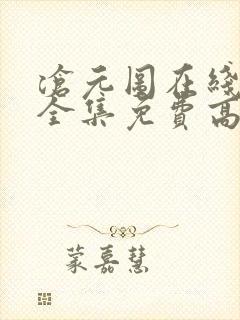 滄元图在綫
全集免費高
蒙嘉慧